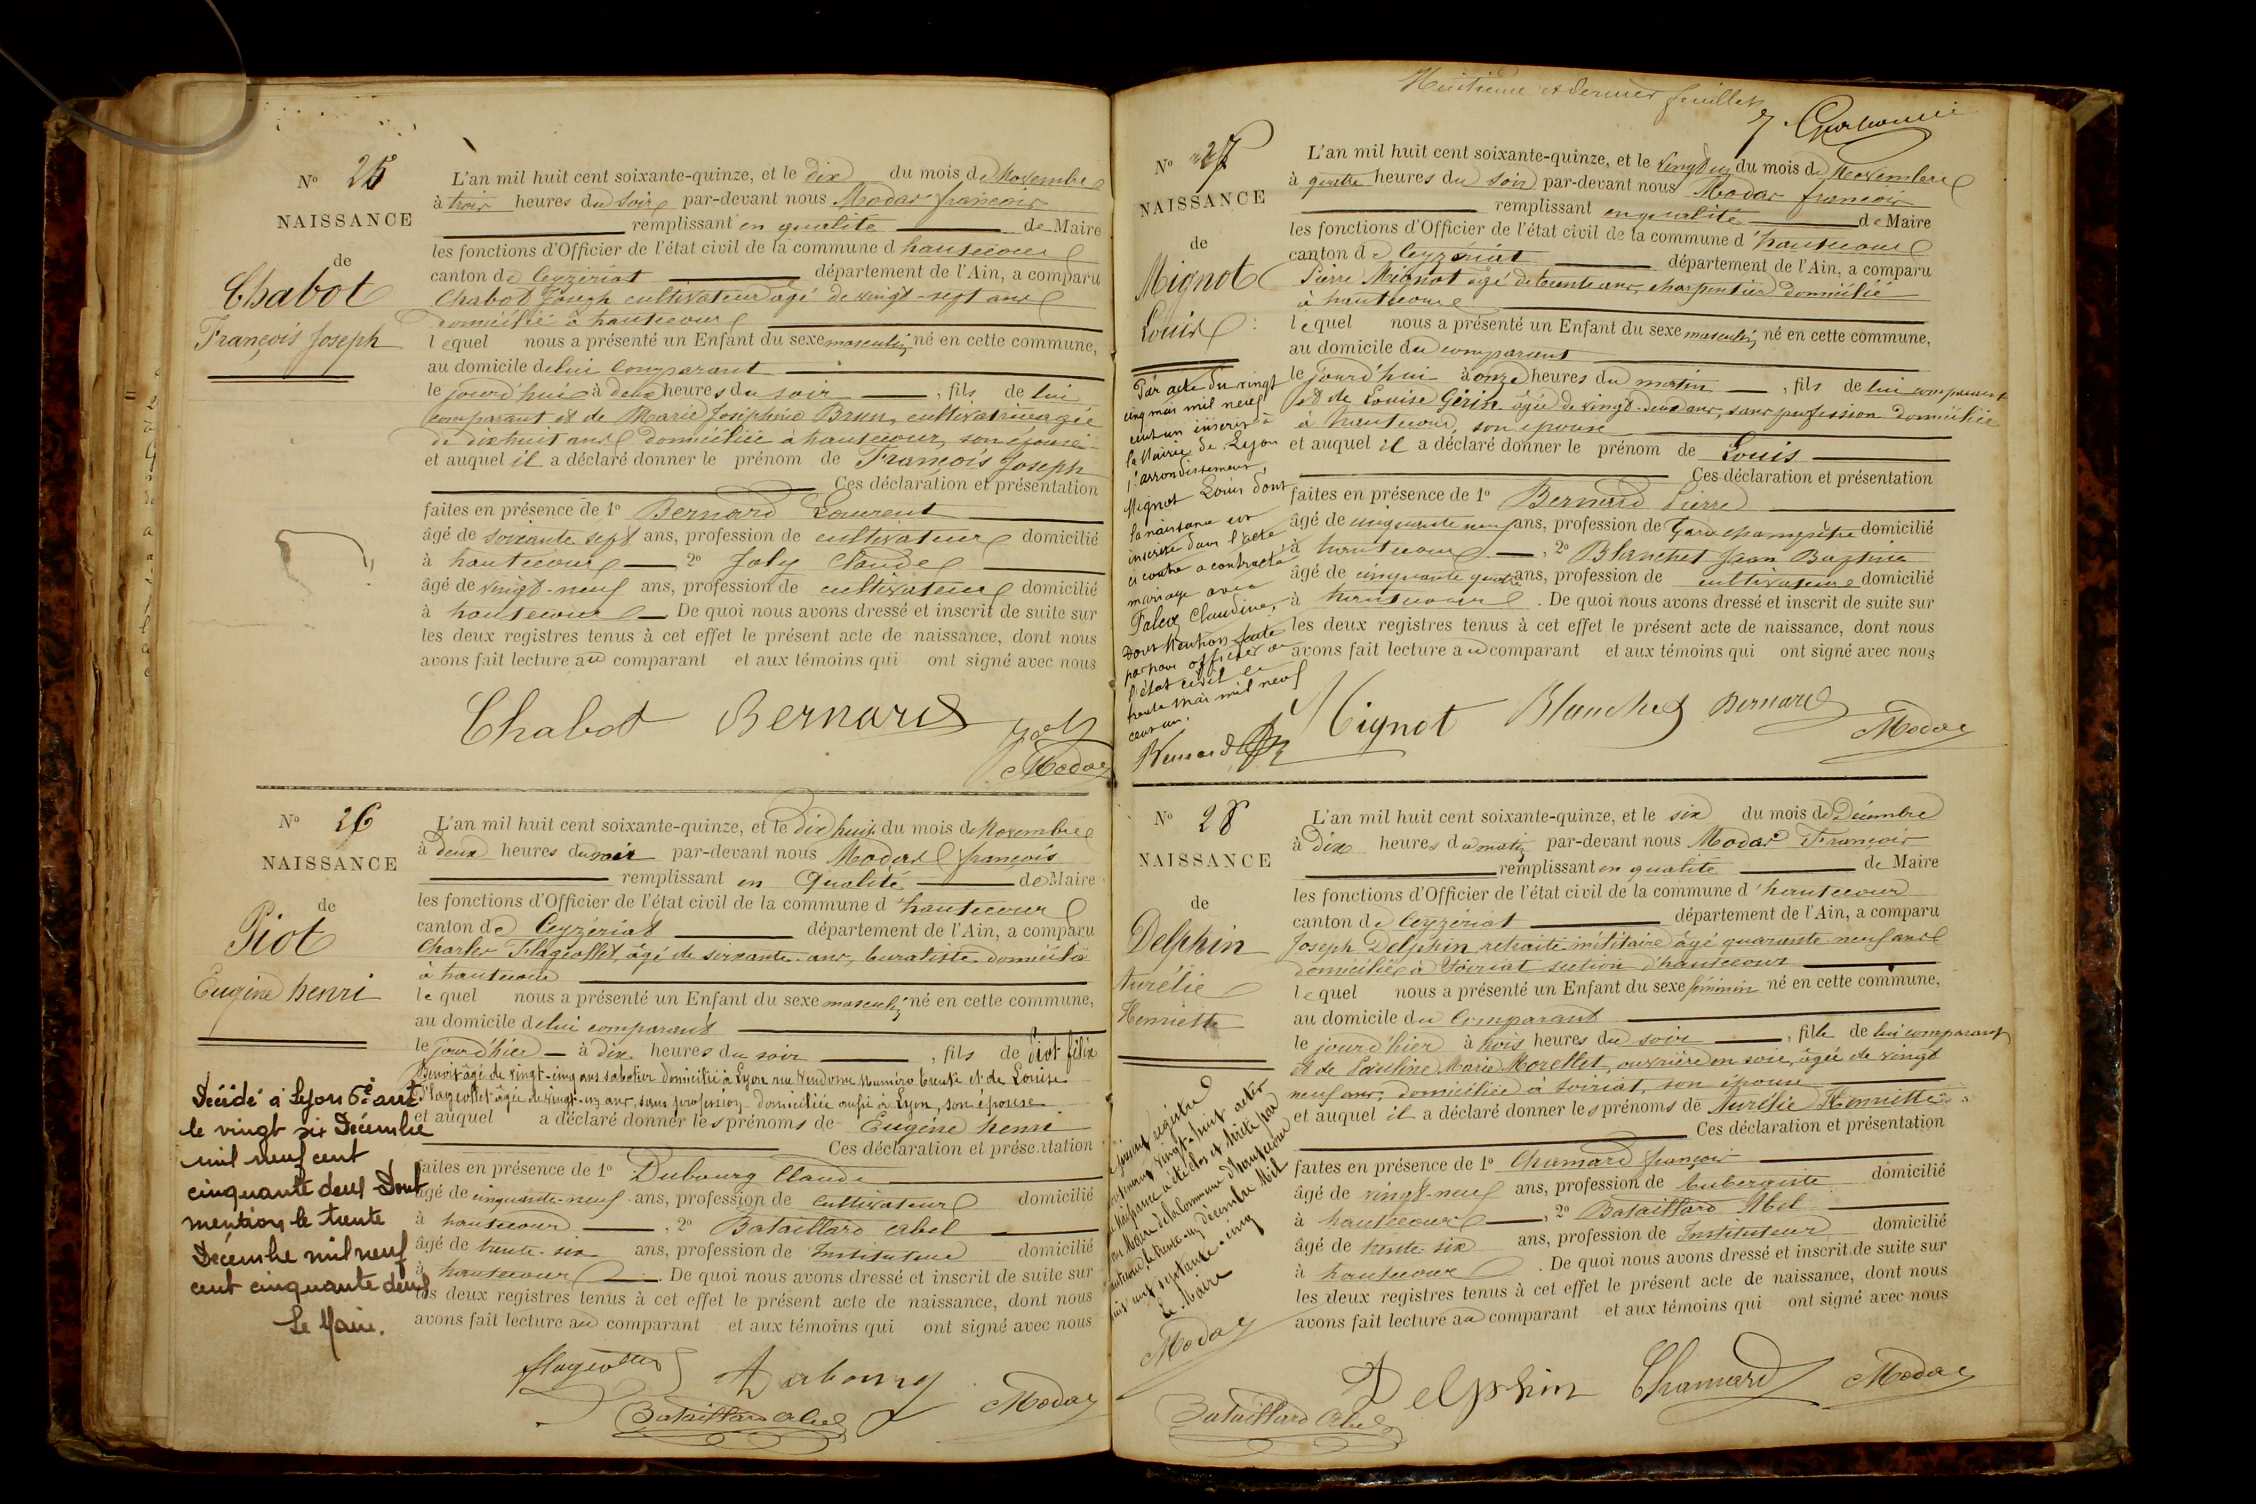 N° 25
NAISSANCE
de
Chabot
François Joseph
L'an mil huit cent soixante-quinze, et le dix du mois de Novembre
à trois heures du soir par-devant nous Modas françois
remplissant en qualité de Maire
les fonctions d'Officier de l'état civil de la commune d'hautecour
canton de Ceyzériat département de l'Ain, a comparu
Chabot Joseph cultivateur âgé de vingt-sept ans
domicilié à hautecour
lequel nous a présenté un Enfant du sexe masculin né en cette commune,
au domicile de lui comparant
le jourd'hui à deux heures du soir, fils de lui
comparant et de Marie Joséphine Brun, cultivatrice agée
de dix huit ans domiciliée à hautecour, son épouse
et auquel il a déclaré donner le prénom de François Joseph
Ces déclaration et présentation
faites en présence de 1° Bernard Laurent
âgé de soixante sept ans, profession de cultivateur domicilié
à hautecour 2° Joly Claude
âgé de vingt-neuf ans, profession de cultivateur domicilié
à hautecour De quoi nous avons dressé et inscrit de suite sur
les deux registres tenus à cet effet le présent acte de naissance, dont nous
avons fait lecture au comparant et aux témoins qui ont signé avec nous
Chabot Bernard Joly
Modas
N° 26
NAISSANCE
de
Piot
Eugène henri
Décédé à Lyon 6e arrt
le vingt six Décembre
mil neuf cent
cinquante deux Dont
mention, le trente
Décembre mil neuf
cent cinquante deux
Le Maire.
L'an mil huit cent soixante-quinze, et le dix huit du mois de Novembre
à Deux heures du soir par-devant nous Modas françois
remplissant en Qualité de Maire
les fonctions d'Officier de l'état civil de la commune d'hautecour
canton de Ceyzériat département de l'Ain, a comparu
Charles Flageollet, âgé de soixante ans, buraliste domicilié
à hautecour
lequel nous a présenté un Enfant du sexe masculin né en cette commune,
au domicile de lui comparant
le jourd'hier à dix heures du soir, fils de Piot félix
Benoit âgé de vingt-cinq ans sabotier domicilié à Lyon rue Vendome numéro trente et de Louise
Flageollet âgée de vingt-un ans, sans profession domiciliée aussi à Lyon, son épouse
et auquel a déclaré donner les prénoms de Eugène henri
Ces déclaration et présentation
faites en présence de 1° Dubourg Claude
âgé de cinquante-neuf ans, profession de Cultivateur domicilié
à hautecour, 2° Bataillard Abel
âgé de trente-six ans, profession de Instituteur domicilié
à hautecour. De quoi nous avons dressé et inscrit de suite sur
les deux registres tenus à cet effet le présent acte de naissance, dont nous
avons fait lecture au comparant et aux témoins qui ont signé avec nous
Flageollet Dubourg
Bataillard Abel Modas
Huitième et dernier feuillet
N° 27
NAISSANCE
de
Mignot
Louis
Par acte du vingt
cinq mai mil neuf
cent un inscrit à
la Mairie de Lyon
1er arrondissement,
Mignot Louis dont
la naissance est
inscrite dans l'acte
ci contre a contracté
mariage avec
Claudine,
Dont Mention faite
par nous officier de
l'état civil le
trente Mai mil neuf
cent un.
L'an mil huit cent soixante-quinze, et le vingt un du mois de Novembre
à quatre heures du soir par-devant nous Modas françois
remplissant en qualité de Maire
les fonctions d'Officier de l'état civil de la commune d'hautecour
canton de Ceyzériat département de l'Ain, a comparu
Pierre Mignot âgé de trente ans, charpentier domicilié
à hautecour
lequel nous a présenté un Enfant du sexe masculin né en cette commune,
au domicile du comparant
le jourd'hui à onze heures du matin, fils de lui comparant
et de Louise Gérin âgée de vingt-deux ans, sans profession domiciliée
à hautecour, son épouse
et auquel il a déclaré donner le prénom de Louis
Ces déclaration et présentation
faites en présence de 1° Bernard Pierre
âgé de cinquante neuf ans, profession de Garde champêtre domicilié
à hautecour, 2° Blanchet Jean Baptiste
âgé de cinquante quatre ans, profession de cultivateur domicilié
à hautecour. De quoi nous avons dressé et inscrit de suite sur
les deux registres tenus à cet effet le présent acte de naissance, dont nous
avons fait lecture au comparant et aux témoins qui ont signé avec nous
Mignot Blanchet Bernard Modas
N° 28
NAISSANCE
de
Delphin
Aurélie
Henriette
Le présent registre
contenant vingt-huit actes
de Naissance a été clos et arrêté par
Maire de la commune d'hautecour
le trente-un décembre Mil
huit cent septante-cinq
Le Maire
Modas
Bataillard Abel
L'an mil huit cent soixante-quinze, et le six du mois de Décembre
à Dix heures du matin par-devant nous Modas François
remplissant en qualité de Maire
les fonctions d'Officier de l'état civil de la commune d'hautecour
canton de Ceyzériat département de l'Ain, a comparu
Joseph Delphin retraité militaire âgé quarante-neuf ans
domicilié à Soiriat section d'hautecour
lequel nous a présenté un Enfant du sexe féminin né en cette commune,
au domicile du Comparant
le jourd'hier à trois heures du soir, fille de lui comparant
et de Pauline Marie Morellet, ouvrière en soie, âgée de vingt
neuf ans, domiciliée à Soiriat, son épouse
et auquel il a déclaré donner les prénoms de Aurélie Henriette
Ces déclaration et présentation
faites en présence de 1° Chamard françois
âgé de vingt-neuf ans, profession de Aubergiste domicilié
à hautecour, 2° Bataillard Abel
âgé de trente-six ans, profession de Instituteur domicilié
à hautecour. De quoi nous avons dressé et inscrit de suite sur
les deux registres tenus à cet effet le présent acte de naissance, dont nous
avons fait lecture au comparant et aux témoins qui ont signé avec nous
Delphin Chamard Modas